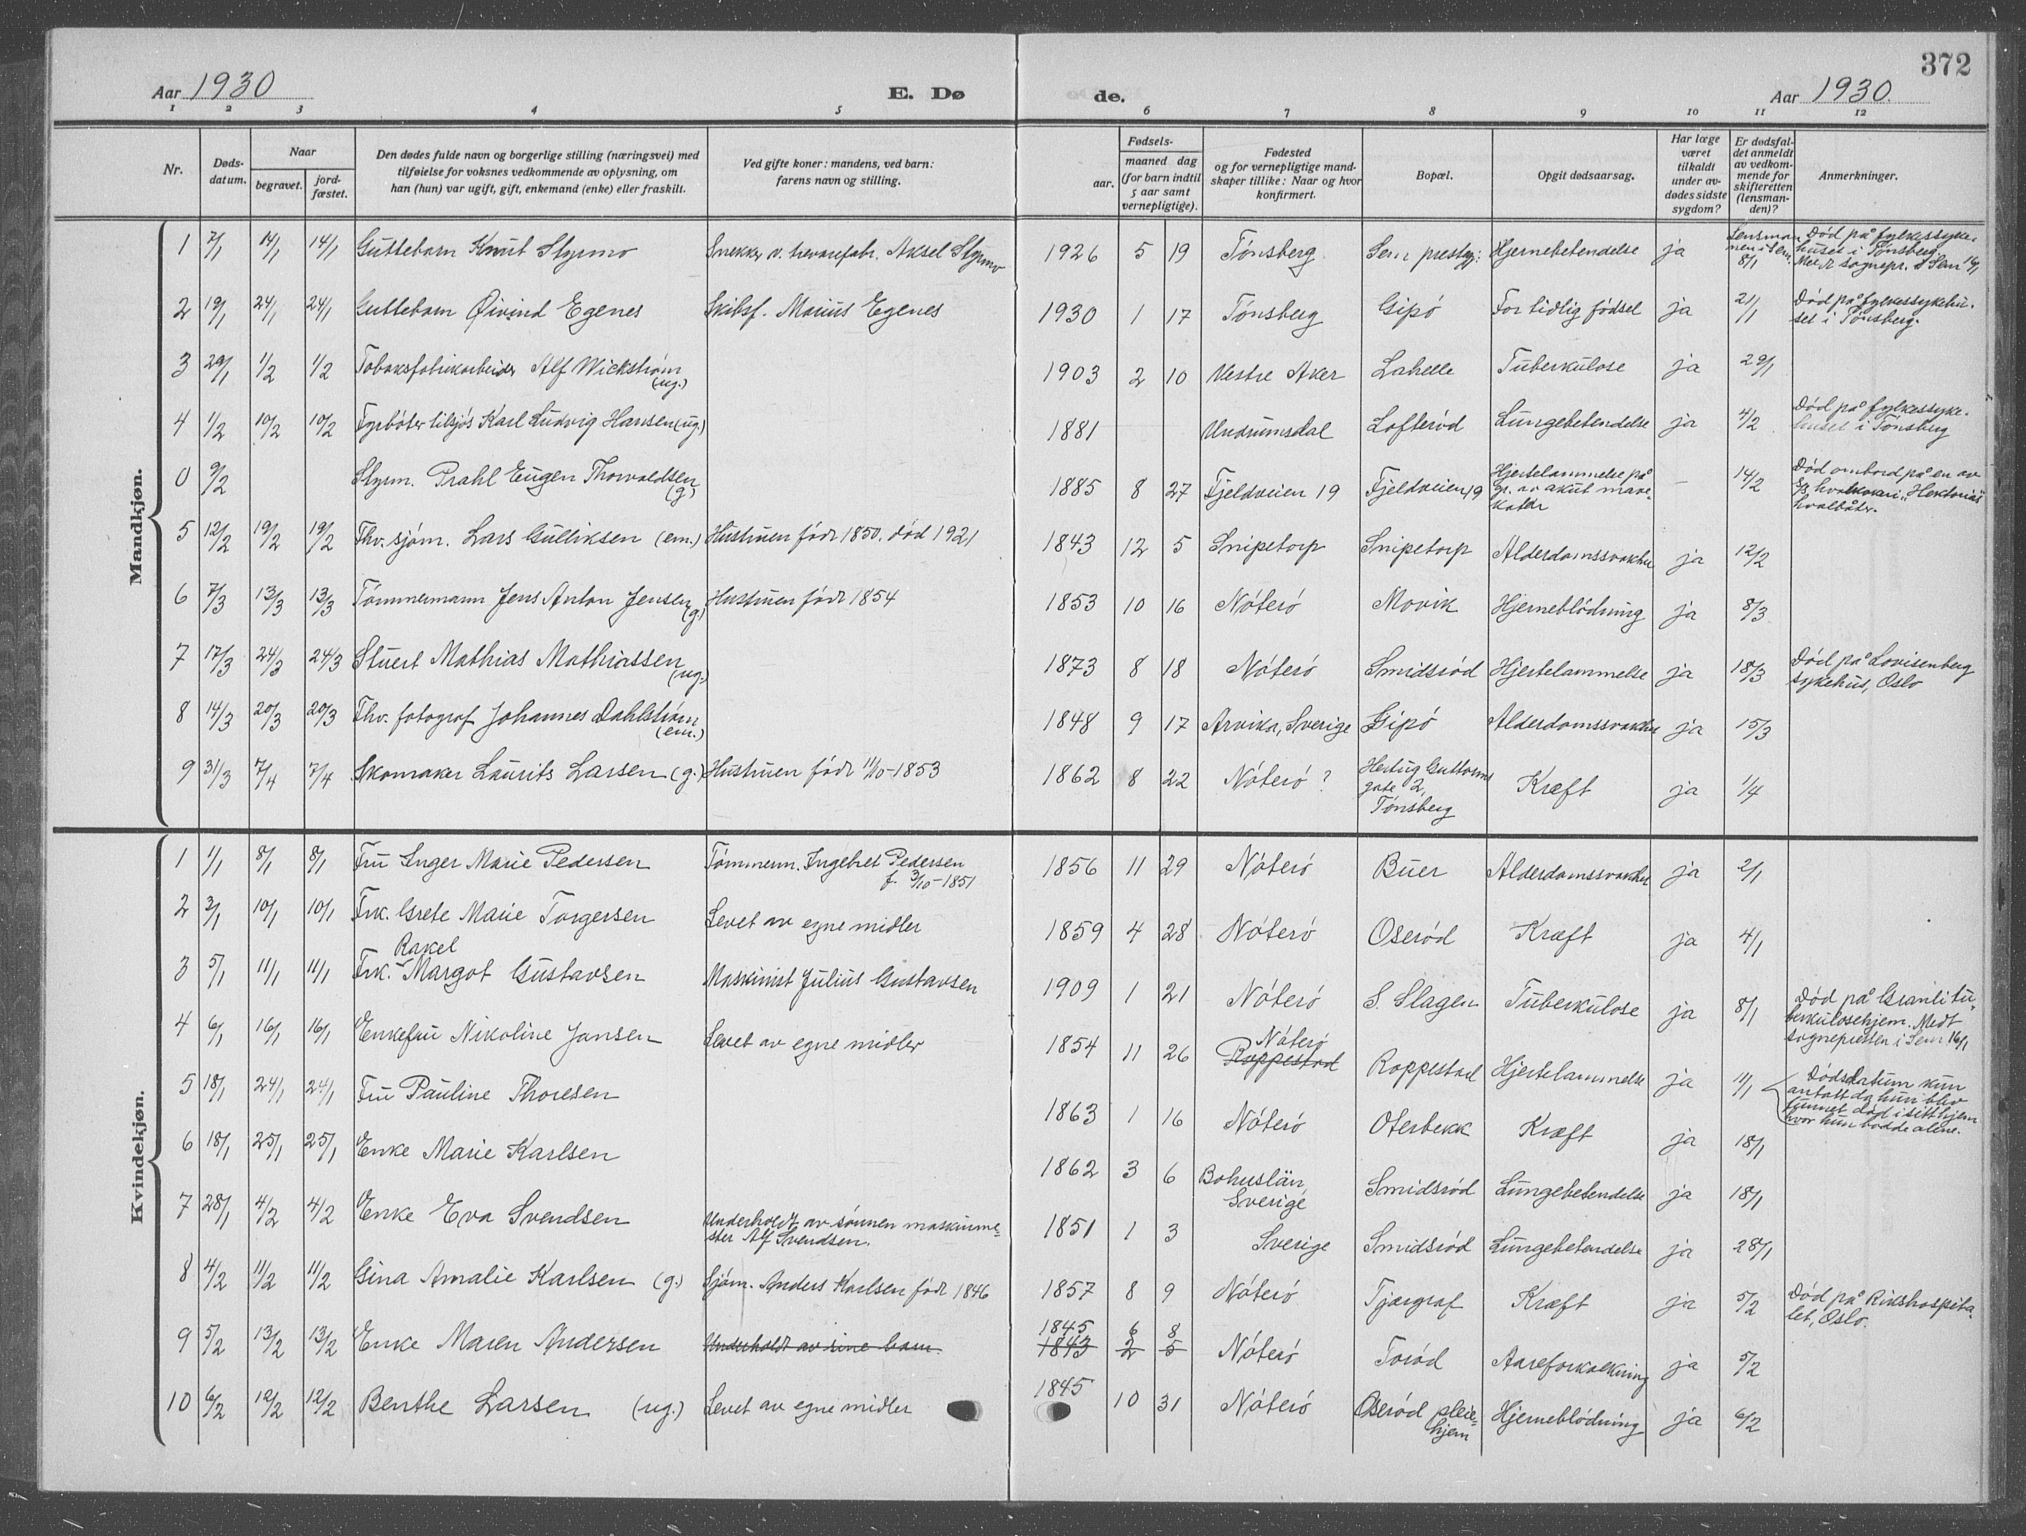 372
Aar 1930
E. Dø
de.
Aar 1930.
1 2 3 4 5 6 7 8 9 10 11 12
Nr.
Døds-
datum.
Naar
begravet.
jord-
fæstet.
Den dødes fulde navn og borgerlige stilling (næringsvei) med
tilføielse for voksnes vedkommende av oplysning, om
han (hun) var ugift, gift, enkemand (enke) eller fraskilt.
Ved gifte koner: mandens, ved barn:
farens navn og stilling.
Fødsels-
aar.
maaned dag
(for barn indtil
5 aar samt
vernepligtige).
Fødested
og for vernepligtige mand-
skaper tillike: Naar og hvor
konfirmert.
Bopæl.
Opgit dødsaarsag.
Har læge
været
tilkaldt
under av-
dødes sidste
sygdom?
Er dødsfal-
det anmeldt
av vedkom-
mende for
skifteretten
(lensman-
den)?
Anmerkninger.
Mandkjøn.
1 7/1 14/1 14/1 Guttebarn Knut Styrmo Snekker v. trevarefabr. Aksel Styrmo 1926 5 19 Tønsberg Sem prestegj: Hjernebetendelse ja Lensman
nen i Sem.
8/1 Død på fylkessyke-
huset i Tønsberg.
Medt sognepr. i Sem 16/1
2 19/1 24/1 24/1 Guttebarn Øivind Egenes Skibsf. Marius Egenes 1930 1 17 Tønsberg Gipö For tidlig fødsel ja 21/1 Død på fylkessykehu-
set i Tønsberg.
3 29/1 1/2 1/2 Tobaksfabrikarbeider Alf Wickstrøm
(ug.) 1903 2 10 Vestre Aker Lahelle Tuberkulose ja 29/1
4 1/2 10/2 10/2 Fyrbøter tilsjøs Karl Ludvig Hansen (ug.) 1881 Undrumsdal Lofterød Lungebetendelse ja 4/2 Død på fylkessyke-
huset i Tønsberg
0 9/2 Styrm. Prahl Eugen Thorvaldsen
(g.) 1885 8 27 Fjeldveien 19 Fjeldveien 19 Hjertelammelse på
gr. av akut mave-
katar — 14/2 Død ombord på en av
hvalkokeri Hektorias
hvalbåter.
5 12/2 19/2 19/2 Fhv. sjøm. Lars Gulliksen (em.) Hustruen født 1850, død 1921 1843 12 5 Snipetorp Snipetorp Alderdomssvakhet ja 12/2
6 7/3 13/3 13/3 Tømmermann Jens Anton Jensen
(g.) Hustruen født 1854 1853 10 16 Nöterö Movik Hjerneblödning ja 8/3
7 17/3 24/3 24/3 Stuert Mathias Mathiassen
(ug.) 1873 8 18 Nöterö Smidsrød Hjertelammelse ja 18/3 Død på Lovisenberg
sykehus, Oslo
8 14/3 20/3 20/3 Fhv. fotograf Johannes Dahlstrøm
(em.) 1848 9 17 Arvika, Sverige Gipö Alderdomssvakhet ja 15/3
9 31/3 7/4 7/4 Skomaker Laurits Larsen (g.) Hustruen født 11/10-1853 1862 8 22 Nöterö? Hertug Guttorms
gate 2,
Tønsberg Kræft ja 1/4
Kvindekjøn.
1 1/1 8/1 8/1 Fru Inger Marie Pedersen Tømmerm. Ingebret Pedersen
f. 3/10-1851 1856 11 29 Nöterö Buer Alderdomssvakhet ja 2/1
2 3/1 10/1 10/1 Frk. Grete Marie Torgersen Levet av egne midler 1859 4 28 Nöterö Oserød Kræft ja 4/1
3 5/1 11/1 11/1 Rakel
Frk. Margot Gustavsen Maskinist Julius Gustavsen 1909 1 21 Nöterö S. Slagen Tuberkulose ja 8/1 Død på Granli tu-
berkulosehjem. Medt
sognepresten i Sem 16/1
4 6/1 16/1 16/1 Enkefru Nikoline Jansen Levet av egne midler 1854 11 26 Nöterö
Roppestad Roppestad Hjertelammelse ja 11/1 Dødsdatum kun
antatt da hun blev
funnet død i sitt hjem
hvor hun bodde alene.
5 18/1 24/1 24/1 Fru Pauline Thoresen 1863 1 16 Nöterö Oterbekk Kræft ja 18/1
6 18/1 25/1 25/1 Enke Marie Karlsen 1862 3 6 Bohuslän
Sverige Smidsrød Lungebetendelse ja 18/1
7 28/1 4/2 4/2 Enke Eva Svendsen Underholdt av sønnen maskinme-
ster Alf Svendsen. 1851 1 3 Sverige Smidsrød Lungebetendelse ja 28/1
8 4/2 11/2 11/2 Gina Amalie Karlsen (g.) Sjøm. Anders Karlsen født 1846 1857 8 9 Nöterö Tjærgraf Kræft ja 5/2 Død på Rikshospita-
let, Oslo.
9 5/2 13/2 13/2 Enke Maren Andersen Underholdt av sine barn. 1845 6 8
1843 2 5 Nöterö Torød Aareforkalkning ja 5/2
10 6/2 12/2 12/2 Benthe Larsen (ug.) Levet av egne midler 1845 10 31 Nöterö Oserød pleie-
hjem Hjerneblödning ja 6/2